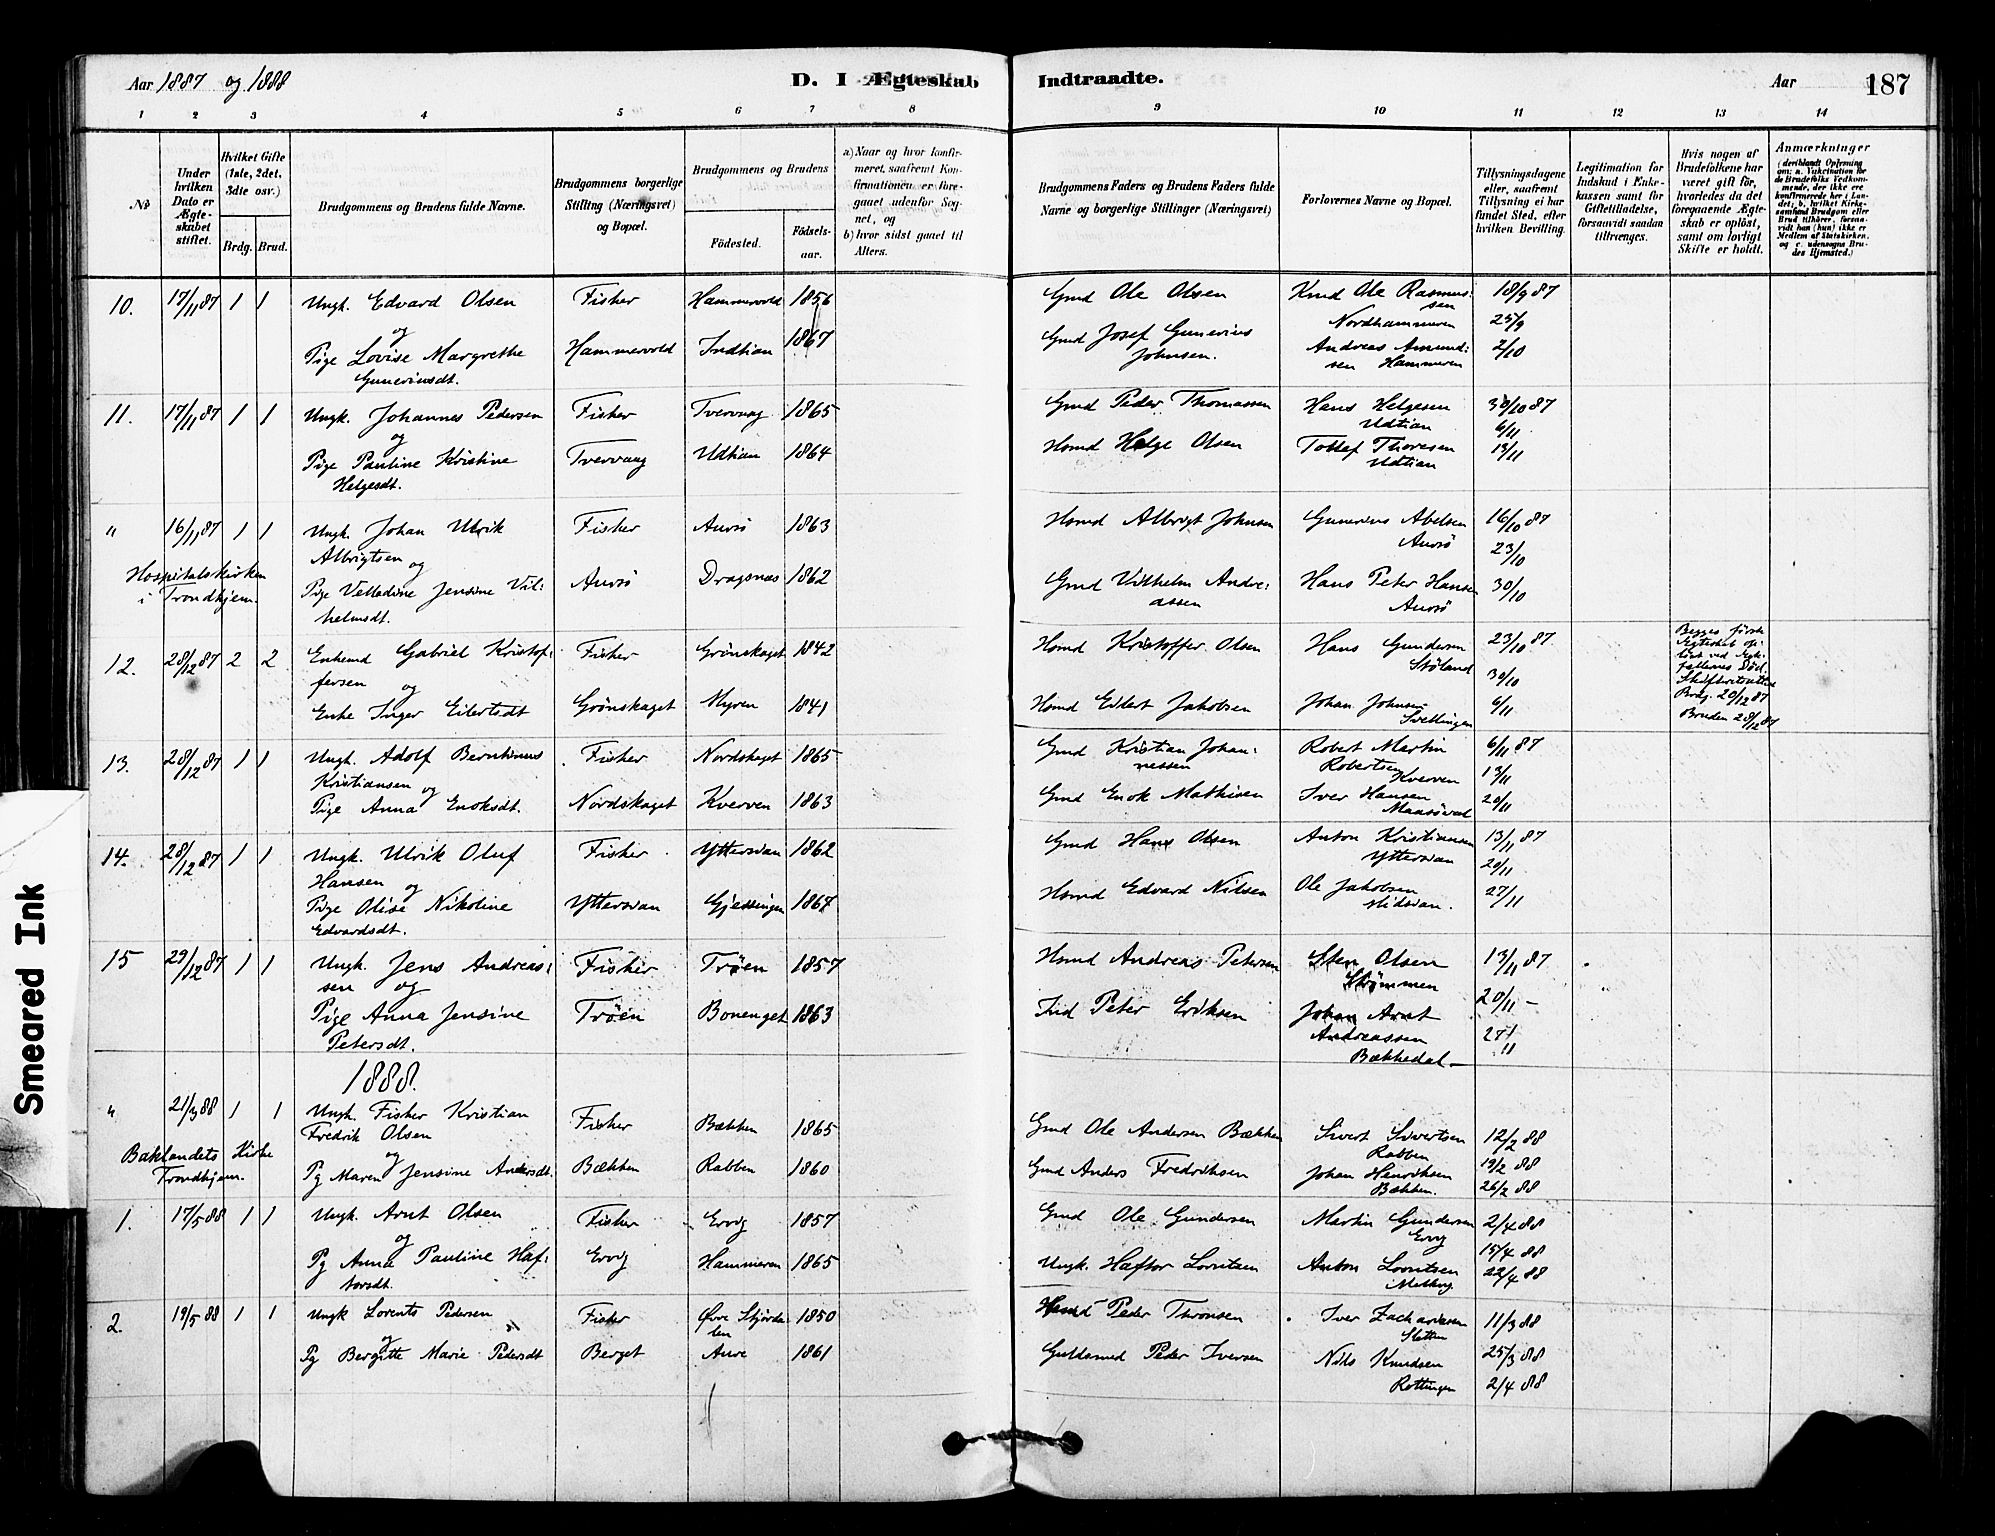 Aar 1887 og 1888
D. I Ægteskab Indtraadte.
Aar 187
1 2 3 4 5 6 7 8 9 10 11 12 13 14
No
Under hvilken Dato er Ægteskabet stiftet.
Hvilket Gifte (1ste, 2det, 3die osv.)
Brdg. Brud.
Brudgommens og Brudens fulde Navne.
Brudgommens borgerlige Stilling (Næringsvei) og Bopæl.
Brudgommens og Brudens
Födested. Födsels-aar.
a) Naar og hvor konfirmeret, saafremt Konfirmationen er foregaaet udenfor Sognet, og
b) hvor sidst gaaet til Alters.
Brudgommens Faders og Brudens Faders fulde Navne og borgerlige Stillinger (Næringsvei)
Forlovernes Navne og Bopæl.
Tillysningsdagene eller, saafremt Tillysning ei har fundet Sted, efter hvilken Bevilling.
Legitimation for Indskud i Enkekassen samt for Giftetilladelse, forsaavidt saadan tiltrænges.
Hvis nogen af Brudefolkene har været gift för, hvorledes da det foregaaende Ægteskab er oplöst, samt om lovligt Skifte er holdt.
Anmærkninger
10. 17/11 87 1 1 Ungk. Edvard Olsen Fisker Hammervold 1856 Gmd Ole Olsen Knud Ole Rasmussen 18/9 87
og Nordhammeren 25/9
Pige Lovise Margrethe Hammervold Indtian 1867 Gmd Josef Gunerius Andreas Amund: 2/10
Guneriusdt. Johnsen. sen Hammeren
11. 17/11 87 1 1 Ungk. Johannes Pedersen Fisker Tvervaag 1865 Gmd Peder Thomassen Hans Helgesen 30/10 87
og Udtian 6/11
Pige Pauline Kristine Tvervaag Udtian 1864 Hsmd Helge Olsen Tollef Thoresen 13/11
Helgesdt. Udtian
" 16/11 87 1 1 Ungk. Johan Ulrik Fisker Aursö 1863 Hsmd Albrigt Johnsen Gunerius Abelsen 16/10 87
Albrigtsen og Aursö 23/10
Hospitalskirken i Trondhjem.
Pige Velledine Jensine Vil: Aursö Dragsnæs 1862 Gmd Vilhelm Andre: Hans Peter Hansen 30/10
helmsdt. assen Aursö
12. 28/12 87 2 2 Enkemd Gabriel Kristof: Fisker Grönskaget 1842 Hsmd Kristoffer Olsen Hans Gundersen 23/10 87
fersen og Stöland 30/10
Enke Inger Eilertsdt Grönskaget Myren 1841 Hsmd Eilert Jakobsen Johan Johnsen 6/11
Svellingen
Begges förste
Brdg. 20/12 87
Bruden 28/12 87
13. 28/12 87 1 1 Ungk. Adolf Berntinus Fisker Nordskaget 1865 Gmd Kristian Johan: Robert Martin 6/11 87
Kristiansen og nessen Robertsen Kverven 13/11
Pige Anna Enoksdt. Nordskaget Kverven 1863 Gmd Enok Mathisen Iver Hansen 20/11
Maasöval
14. 28/12 87 1 1 Ungk. Ulrik Oluf Fisker Yttersian 1862 Gmd Hans Olsen Anton Kristiansen 13/11 87
Hansen og Yttersian 20/11
Pige Olise Nikoline Yttersian Gjessingen 1867 Hsmd Edvard Nilsen Ole Jakobsen 27/11
Edvardsdt. Midsian.
15 29/12 87 1 1 Ungk. Jens Andreas: Fisker Tröen 1857 Hsmd Andreas Petersen Sten Olsen 13/11 87
sen og Strömmen 20/11 -
Pige Anna Jensine Tröen Bonenget 1863 Ind Peter Eriksen Johan Arnt
Petersdt. Andreassen 27/11
Bækkedal
1888.
" 21/3 88 1 1 Ungk. Fisker Kristian Fisker Bækken 1865 Gmd Ole Andersen Bækken Sivert Sivertsen 12/2 88
Fredrik Olsen Rabben
Baklandets Kirke Trondhjem.
og 19/2 88
Pg Maren Jensine Andersdt. Bækken Rabben 1860 Gmd Anders Fredriksen Johan Henriksen
Bækken. 26/2 88
1. 17/5 88 1 1 Ungk. Arnt Olsen Fisker Ervig 1857 Gmd Ole Gundersen Martin Gundersen 2/4 88
og Ervig 15/4 88
Pg Anna Pauline Haf: Ervig Hammeren 1865 Ungk. Haftor Lorntsen Anton Lorntsen 22/4 88
torsdt.
2. 19/5 88 1 1 Ungk Lorents Pedersen Fisker Övre Stjördalen 1850 Hsmd Peder Thronsen Iver Zachariasen 11/3 88
og Sletten
Pg Bergitte Marie Pedersdt Berget Aure 1861 Guldsmed Peder Iversen Nils Knudsen 25/3 88
Rottingen 2/4 88
Smeared Ink